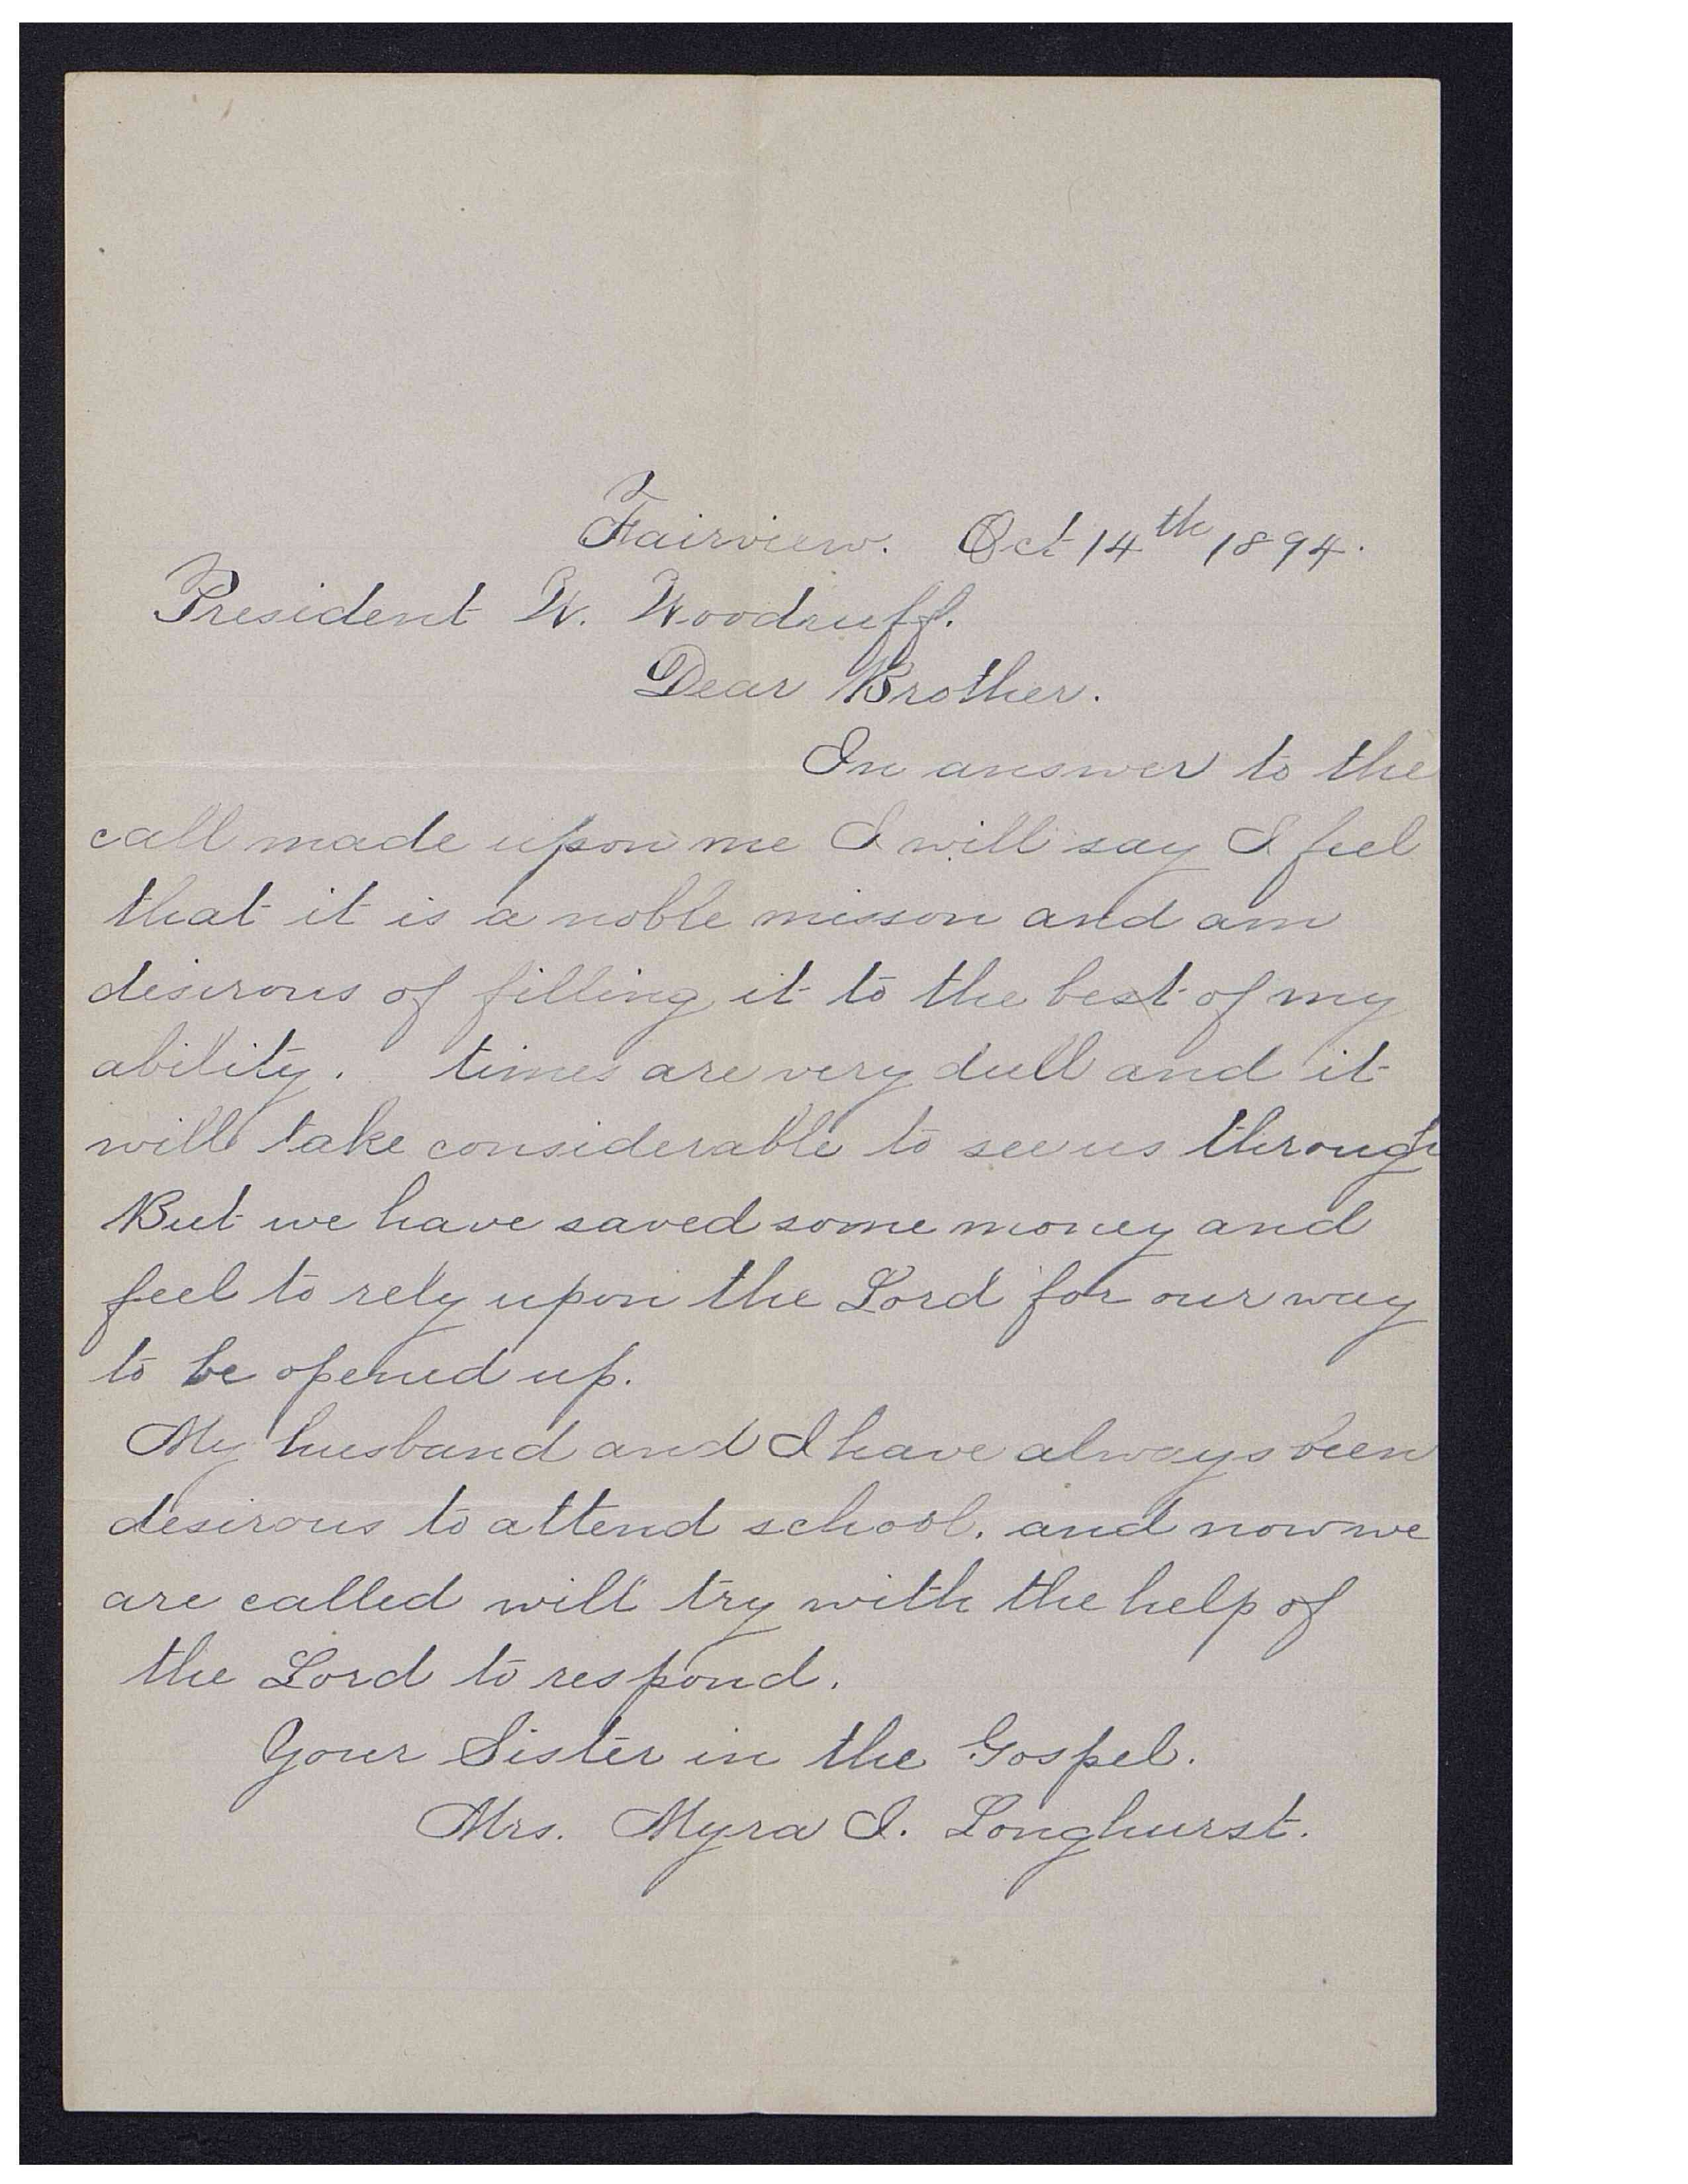 Fairview. Oct 14th 1894.
President W. Woodruff.
Dear Brother.
In answer to the
call made upon me I will say I feel
that it is a noble misson and am
desirous of filling it to the best of my
ability. times are very dull and it
will take considerable to see us through
But we have saved some money and
feel to rely upon the Lord for our way
to be opened up.
My husband and I have always been
desirous to attend school, and now we
are called will try with the help of
the Lord to respond.
Your Sister in the Gospel.
Mrs. Myra I. Longhurst.